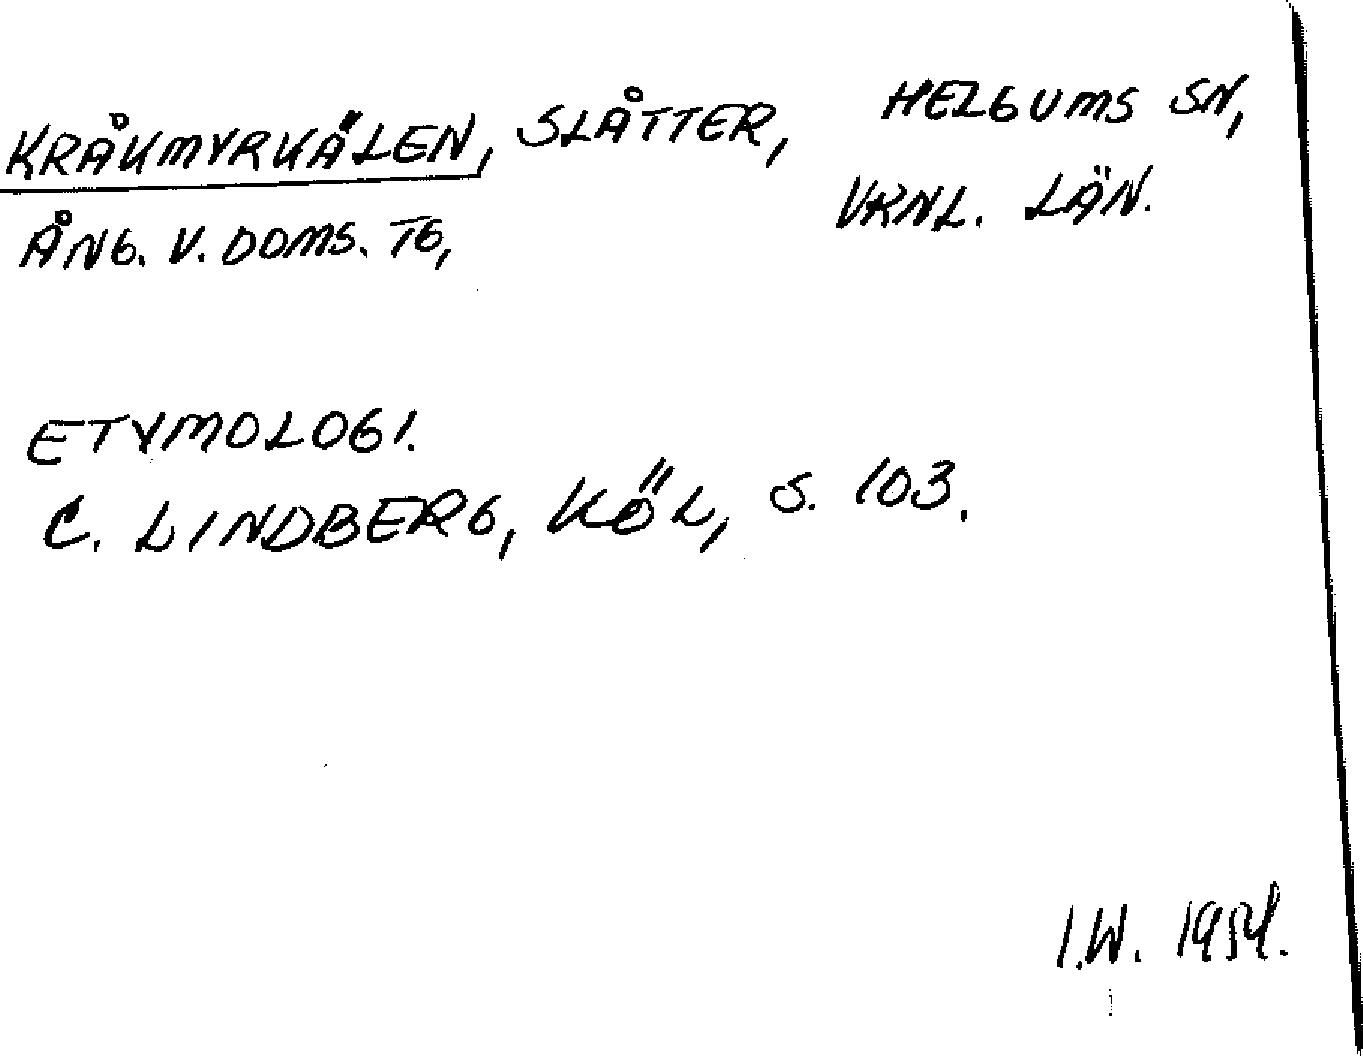 KRÅKMYRKÄLEN, SLÅTTER, HELGUMS SN,
ÅNG. V. DOMS. TG, VKNL. LÄN.
ETYMOLOGI.
C. LINDBERG, KÖL, S. 103.
I.W. 1954.